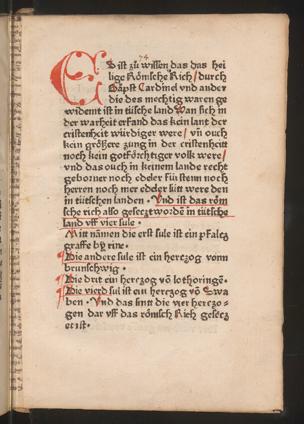 74
Es ist zů wissen das das hei
lige Römische Rich / durch
Bäpst Cardinel vnd ander
die des mechtig waren ge
widemt ist in tütsche land Wan sich in
der warheit erfand das kein lant der
cristenheit würdiger were / vn̄ ouch
kein größere zung in der cristenheit
noch kein gotförchtiger volk were /
vnd das ouch in keinem lande recht
geborner noch edeler fürsten noch
herren noch mer edeler lüt were den
in tütschen landen · Vnd ist das röm
sche rich also gesetzt worde in tütsche
land vff vier sule ·
Mitt nāmen die erst sule ist ein pfalcz
graffe by rine ·
Die andere sule ist ein herczog vom
brunschwig ·
Die drit ein herczog vō lothoringē·
Die vierd sul ist ein herczog vō Swa
ben · Vnd das sint die vier herczo-
gen dar vff das römisch Rich gesecz
et ist ·